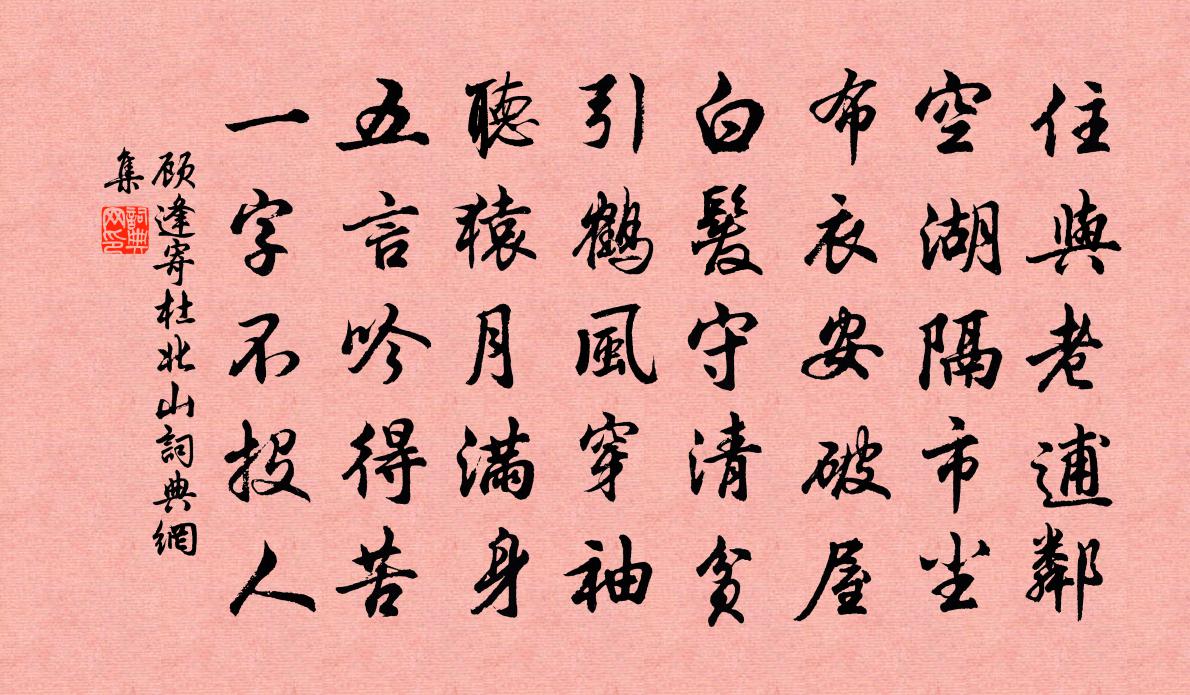 住與老逋鄰
空湖隔市尘
布衣安破屋
白髮守清貧
引鶴風穿袖
聽猿月滿身
五言吟得苦
一字不投人
顾逢寄杜北山詞典網
集
詞典
网印